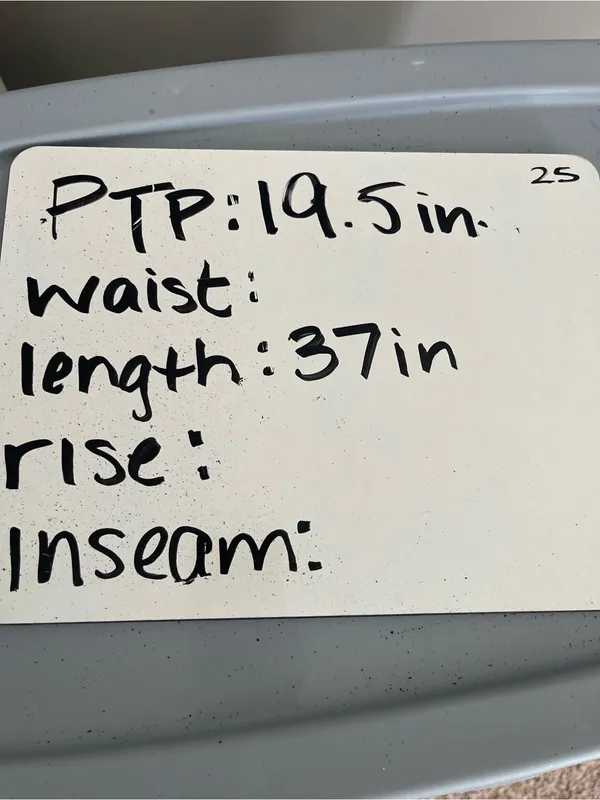 25
PTP: 19.5 in.
waist:
length: 37in
rise:
Inseam: